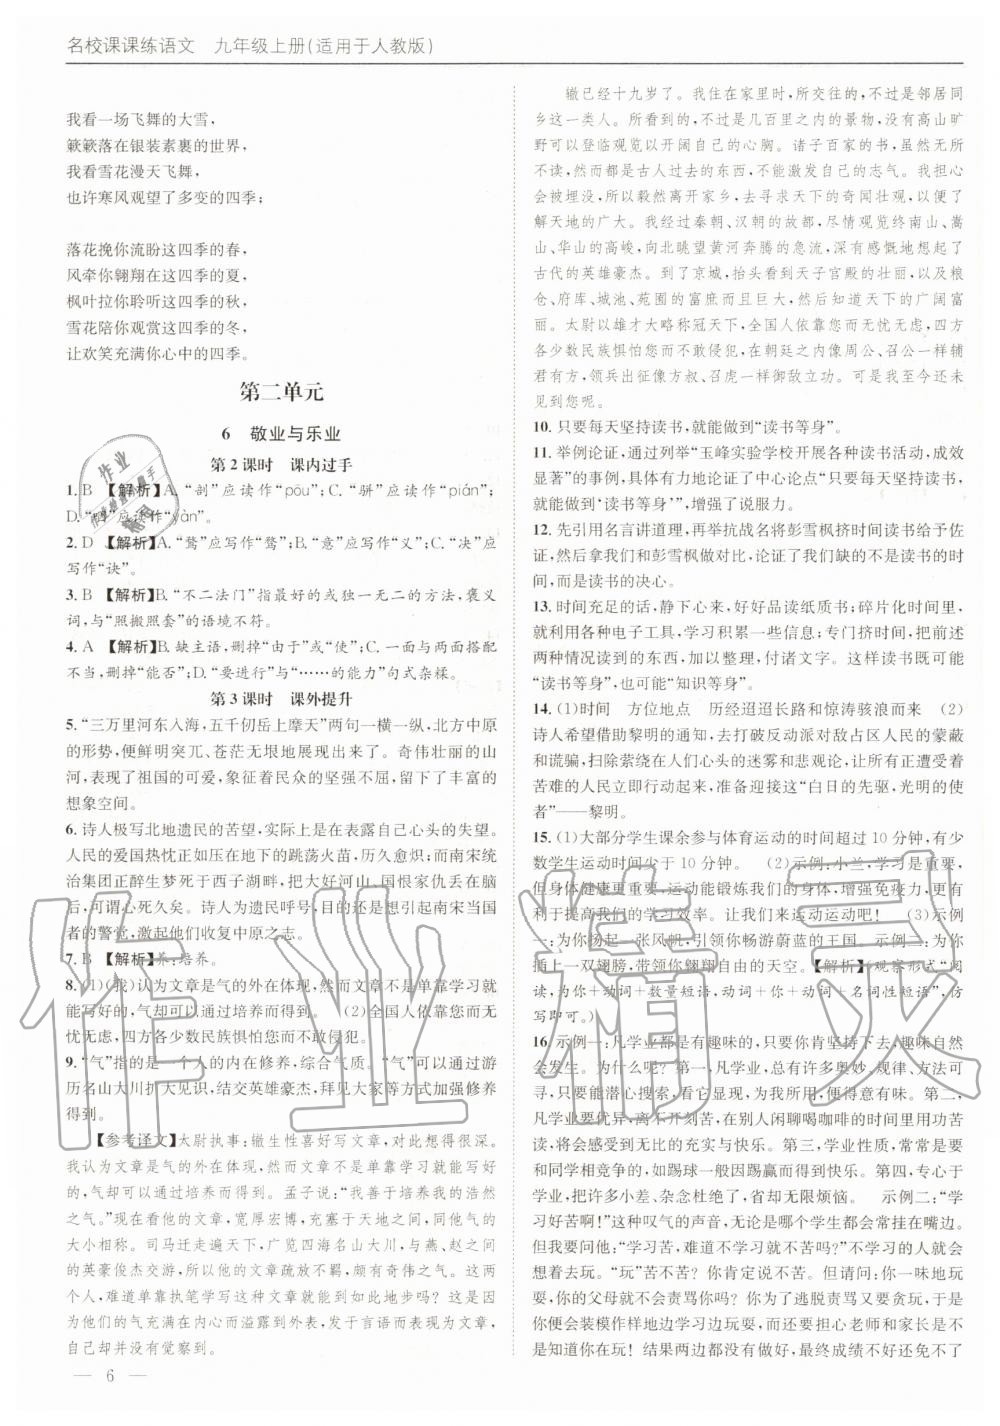 名校课课练语文　九年级上册(适用于人教版)
我看一场飞舞的大雪，
簌簌落在银装素裹的世界，
我看雪花漫天飞舞，
也许寒风观望了多变的四季；
落花挽你流盼这四季的春，
风牵你翱翔在这四季的夏，
枫叶拉你聆听这四季的秋，
雪花陪你观赏这四季的冬，
让欢笑充满你心中的四季。
第二单元
6　敬业与乐业
第2课时　课内过手
1. B 【解析】A.“剖”应读作“pōu”；C.“骈”应读作“pián”；
D.“　”应读作“yàn”。
2. D 【解析】A.“鹜”应写作“骛”；B.“意”应写作“义”；C.“决”应
写作“诀”。
3. B 【解析】B.“不二法门”指最好的或独一无二的方法，褒义
词，与“照搬照套”的语境不符。
4. A 【解析】B.缺主语，删掉“由于”或“使”；C.一面与两面搭配
不当，删掉“能否”；D.“要进行”与“……的能力”句式杂糅。
第3课时　课外提升
5. “三万里河东入海，五千仞岳上摩天”两句一横一纵，北方中原
的形势，便鲜明突兀、苍茫无垠地展现出来了。奇伟壮丽的山
河，表现了祖国的可爱，象征着民众的坚强不屈，留下了丰富的
想象空间。
6. 诗人极写北地遗民的苦望，实际上是在表露自己心头的失望。
人民的爱国热忱正在压在地下的跳荡火苗，历久愈炽；而南宋统
治集团正醉生梦死于西子湖畔，把大好河山、国恨家仇丢在脑
后，可谓心死久矣。诗人为遗民呼号，目的还是想引起南宋当国
者的警觉，激起他们收复中原之志。
7. B 【解析】养：培养。
8. (1)(我)认为文章是气的外在体现，然而文章不是单靠学习就
能写好的，气却可以通过培养而得到。(2)全国人依靠您而无
忧无虑，四方各少数民族惧怕您而不敢侵犯。
9. “气”指的是一个人的内在修养，综合气质。“气”可以通过游
历名山大川扩大见识，结交英雄豪杰，拜见大家等方式加强修养
得到。
【参考译文】太尉执事：辙生性喜好写文章，对此想得很深。
我认为文章是气的外在体现，然而文章不是单靠学习就能写好
的，气却可以通过培养而得到。孟子说：“我善于培养我的浩然
之气。”现在看他的文章，宽厚宏博，充塞于天地之间，同他气的
大小相称。司马迁走遍天下，广览四海名山大川，与燕、赵之间
的英豪俊杰交游，所以他的文章疏放不羁，颇有奇伟之气。这两
个人，难道曾单靠执笔学写这种文章就能到此地步吗？这是因
为他们的气充满在内心而溢露到外貌，发于言语而表现为文章，
自己却并没有觉察到。
辙已经十九岁了。我住在家里时，所交往的，不过是邻居同
乡这一类人。所看到的，不过是几百里之内的景物，没有高山旷
野可以登临观览以开阔自己的心胸。诸子百家的书，虽然无所
不读，然而都是古人过去的东西，不能激发自己的志气。我担心
会被埋没，所以毅然离开了家乡，去寻求天下的奇闻壮观，以便了
解天地的广大。我经过秦朝、汉朝的故都，尽情观览终南山、嵩
山、华山的高峻，向北眺望黄河奔腾的急流，深有感慨地想起了
古代的英雄豪杰。到了京城，抬头看到天子宫殿的壮丽，以及粮
仓、府库、城池、苑囿的富庶而且巨大，然后知道天下的广阔富
丽。太尉以雄才大略称冠天下，全国人依靠您而无忧无虑，四方
各少数民族惧怕您而不敢侵犯，在朝廷之内像周公、召公一样辅
君有方，领兵出征像方叔、召虎一样御敌立功。可是我至今还未
见到您呢。
10. 只要每天坚持读书，就能做到“读书等身”。
11. 举例论证，通过列举“玉峰实验学校开展各种读书活动，成效
显著”的事例，具体有力地论证了中心论点“只要每天坚持读书，
就能做到‘读书等身’”，增强了说服力。
12. 先引用名言讲道理，再举抗战名将彭雪枫挤时间读书给予佐
证，然后拿我们和彭雪枫做对比，论证了我们缺的不是读书的时
间，而是读书的决心。
13. 时间充足的话，静下心来，好好品读纸质书；碎片化时间里，
就利用各种电子工具，学习积累一些信息；专门挤时间，把前述
两种方式读到的东西，加以整理，付诸文字。这样读书既可能
“读书等身”，也可能“知识等身”。
14. (1)时间　方位地点　历经迢迢长路和惊涛骇浪而来　(2)
诗人希望借助黎明的通知，去打破反动派对敌占区人民的蒙蔽
和谎骗，扫除萦绕在人们心头的迷雾和悲观论，让所有正遭受着
苦难的人民立即行动起来，迎接这位“白日的先驱，光明的使
者”——黎明。
15. (1)大部分学生课余参与体育运动的时间超过10分钟，有少
数学生运动时间少于10分钟。　(2)示例：小兰，学习是重要，
但身体健康更重要，运动能锻炼我们的身体，增强免疫力，更有
利于提高我们的学习效率。让我们来运动运动吧！　(3)示例
一：为你扬起一张风帆，引你畅游蔚蓝的王国。示例二：为你
插上一双翅膀，带领你翱翔自由的天空。【解析】(观察形式“阅
读，为你＋动词＋数量短语，动词＋你＋动词＋名词性短语”，仿
写即可。)
16. 示例一：凡学业都是有趣味的，只要你肯坚持下去，趣味自然
会发生。为什么呢？第一，凡学业，总有许多奥妙、规律、方法可
循，倘能潜心探索，看它为我发现，为我所用，便得意有味。第二，
凡学业要优异，离不开刻苦，在别人闲聊喝咖啡的时间里用功苦
读，将会感受到无比的充实与快乐。第三，学业性质，常常是要
和同学相竞争的，如踢球一般因踢赢而得到快乐。第四，专心于
学业，把许多小差、杂念杜绝了，省却无限烦恼。　示例二：“学
习好苦啊！”这种叹气的声音，无论是哪个学生都会常常挂在嘴边。
但我要问他：“学习苦，难道不学习就不苦吗？”不爱学习的人，就会
想着去玩。“玩”苦不苦？你肯定说不苦。但请问：你一味地玩
耍，你的父母就不会责骂你吗？你为了逃脱责骂又要贪玩，你便
会去装模作样地边学习边玩耍，而又要担心老师和家长是不是
在你附近！结果两边都没有玩好和学好，最终成绩不好还免不了
— 6 —
作业精灵